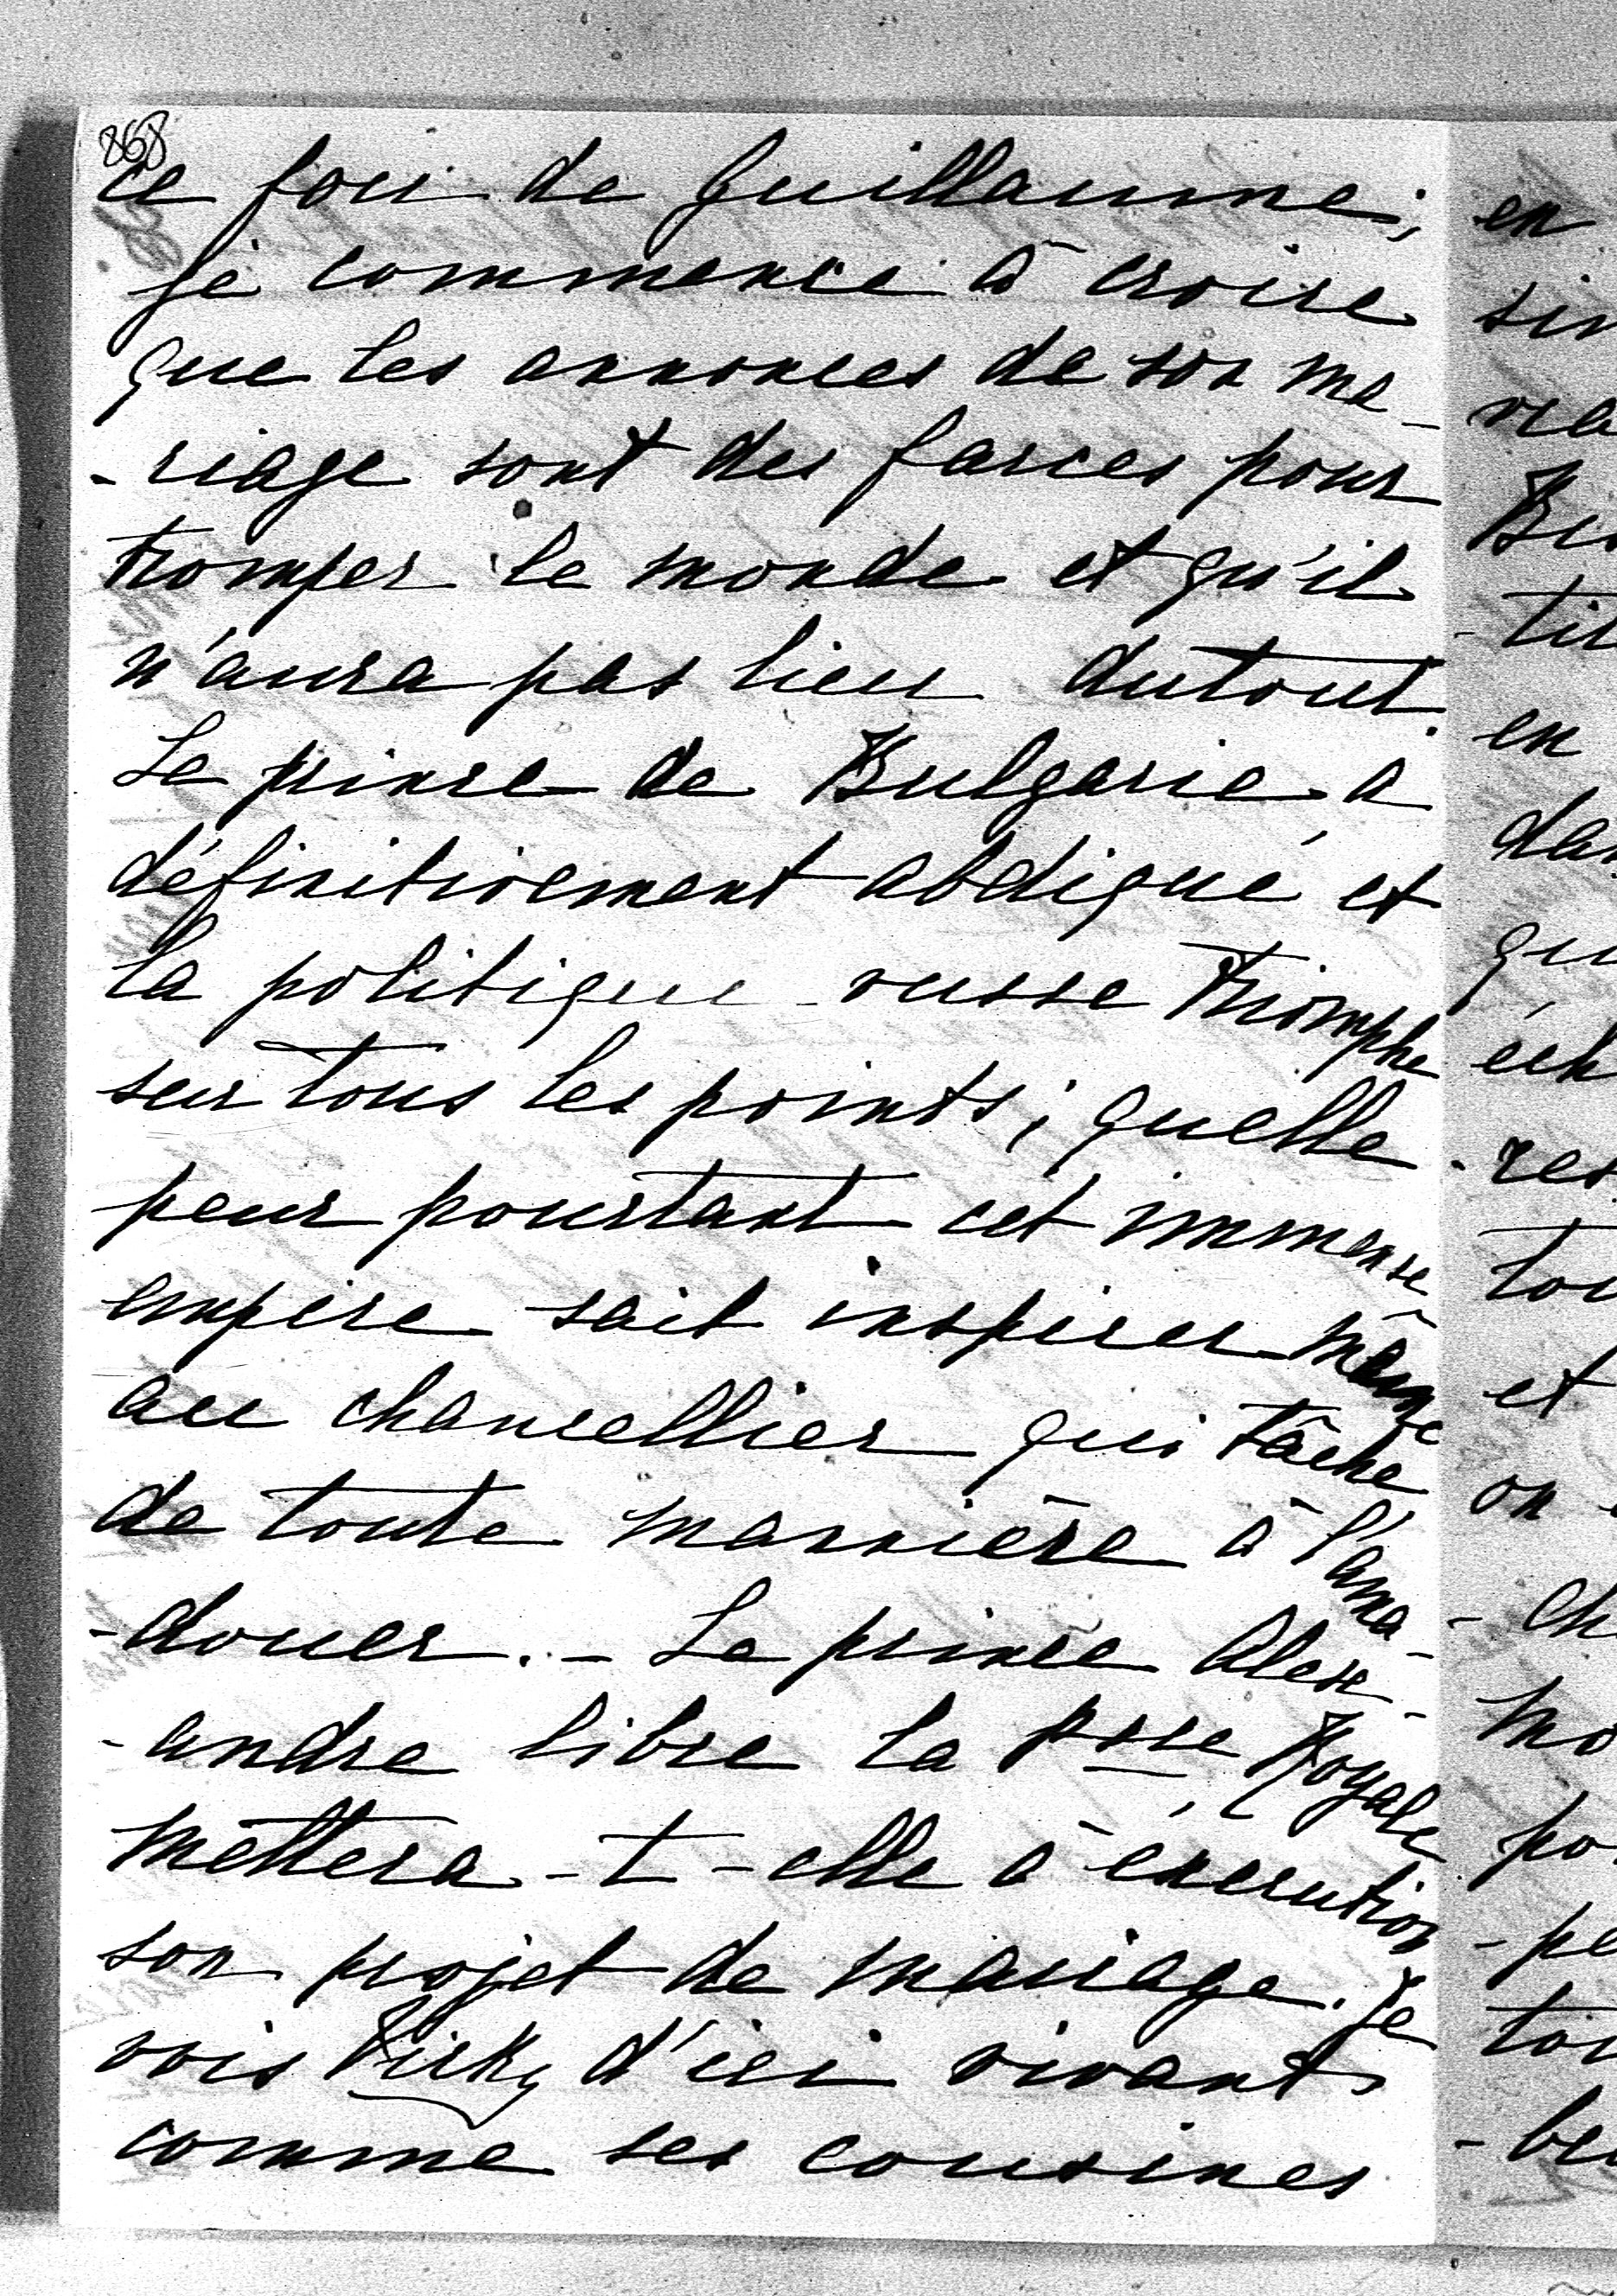 868
ce fou de Guillaume;
je commence à croire
que les annonces de son ma-
-riage sont des farces pour
tromper le monde et qu'il
n'aura pas lieu dutout.
Le prince de Bulgarie a
définitivement abdiqué et
la politique russe triomphe
sur tous les points; quelle
peur pourtant cet immense
empire sait inspirer même
au chancellier qui tâche
de toute mannière à l'ama-
-douer. - Le prince Alex-
-andre libre la Psse Royale
mettera-t-elle à éxecution
son projet de mariage. Je
vois Vicky d'ici vivant
comme ses cousines
en